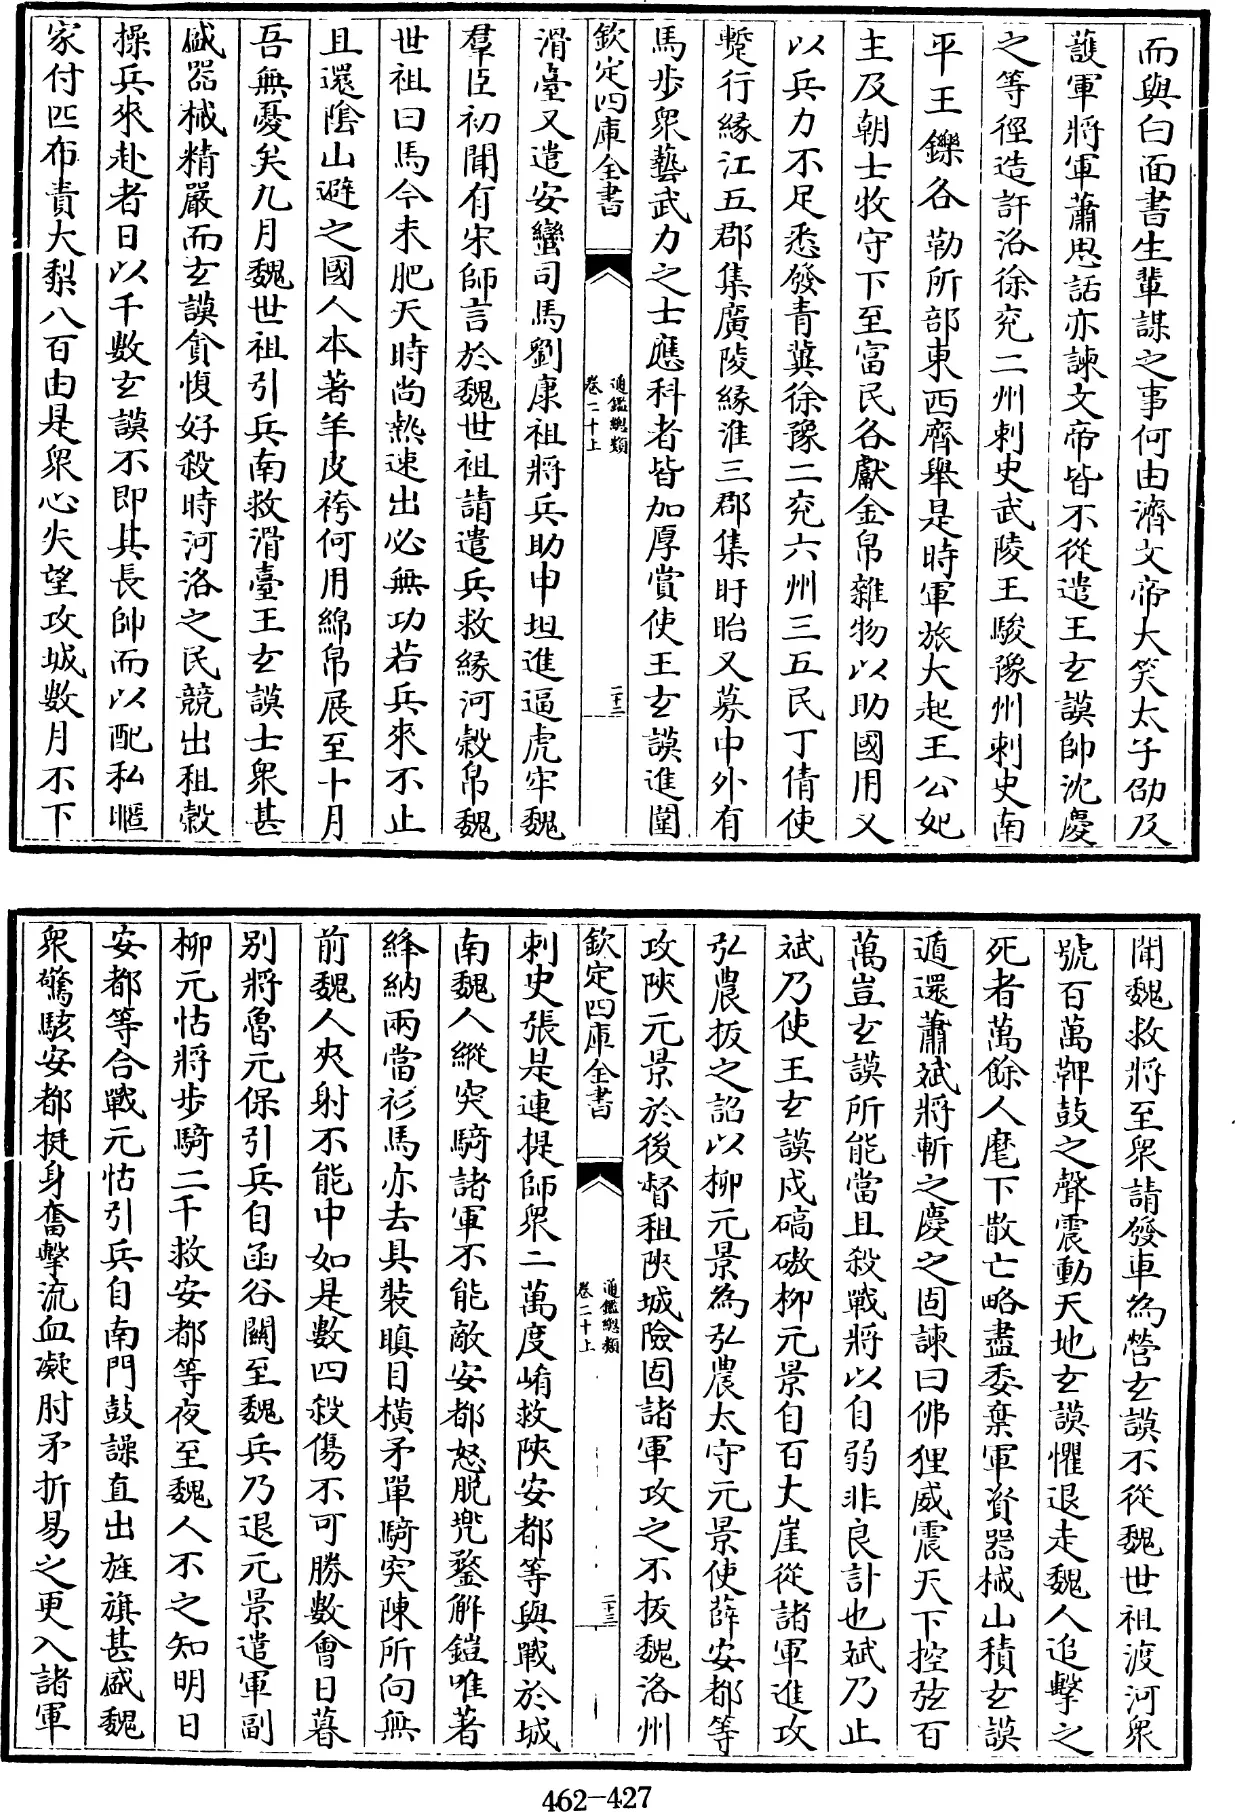 而與白面書生輩謀之事何由濟文帝大笑太子劭及
護軍將軍蕭思話亦諫文帝皆不從遣王玄謨帥沈慶
之等徑造許洛徐兖二州刺史武陵王駿豫州刺史南
平王鑠各勒所部東西齊舉是時軍旅大起王公妃
主及朝士牧守下至富民各獻金帛雜物以助國用又
以兵力不足悉發青冀徐豫二兖六州三五民丁倩使
蹔行緣江五郡集廣陵緣淮三郡集盱眙又募中外有
馬步衆藝武力之士應科者皆加厚賞使王玄謨進圍
欽定四庫全書
通鑑總類
卷二十上
二十二
滑臺又遣安蠻司馬劉康祖將兵助申坦進逼虎牢魏
羣臣初聞有宋師言於魏世祖請遣兵救緣河穀帛魏
世祖曰馬今未肥天時尚熱速出必無功若兵來不止
且還陰山避之國人本著羊皮袴何用綿帛展至十月
吾無憂矣九月魏世祖引兵南救滑臺王玄謨士衆甚
盛器械精嚴而玄謨貪愎好殺時河洛之民競出租穀
操兵來赴者日以千數玄謨不即其長帥而以配私暱
家付匹布責大棃八百由是衆心失望攻城數月不下
聞魏救將至衆請發車為營玄謨不從魏世祖渡河衆
號百萬鞞鼓之聲震動天地玄謨懼退走魏人追擊之
死者萬餘人麾下散亡略盡委棄軍資器械山積玄謨
遁還蕭斌將斬之慶之固諫曰佛狸威震天下控弦百
萬豈玄謨所能當且殺戰將以自弱非良計也斌乃止
斌乃使王玄謨戍碻磝柳元景自百丈崖從諸軍進攻
弘農拔之詔以柳元景為弘農太守元景使薛安都等
攻陜元景於後督租陜城險固諸軍攻之不拔魏洛州
欽定四庫全書
通鑑總類
卷二十上
二十三
刺史張是連提師衆二萬度崤救陜安都等與戰於城
南魏人縱突騎諸軍不能敵安都怒脱兜鍪解鎧唯著
絳納兩當衫馬亦去具裝瞋目橫矛單騎突陳所向無
前魏人夾射不能中如是數四殺傷不可勝數會日暮
别將魯元保引兵自函谷關至魏兵乃退元景遣軍副
柳元怙將步騎二千救安都等夜至魏人不之知明日
安都等合戰元怙引兵自南門鼓譟直出旌旗甚盛魏
衆驚駭安都挺身奮擊流血凝肘矛折易之更入諸軍
462-427